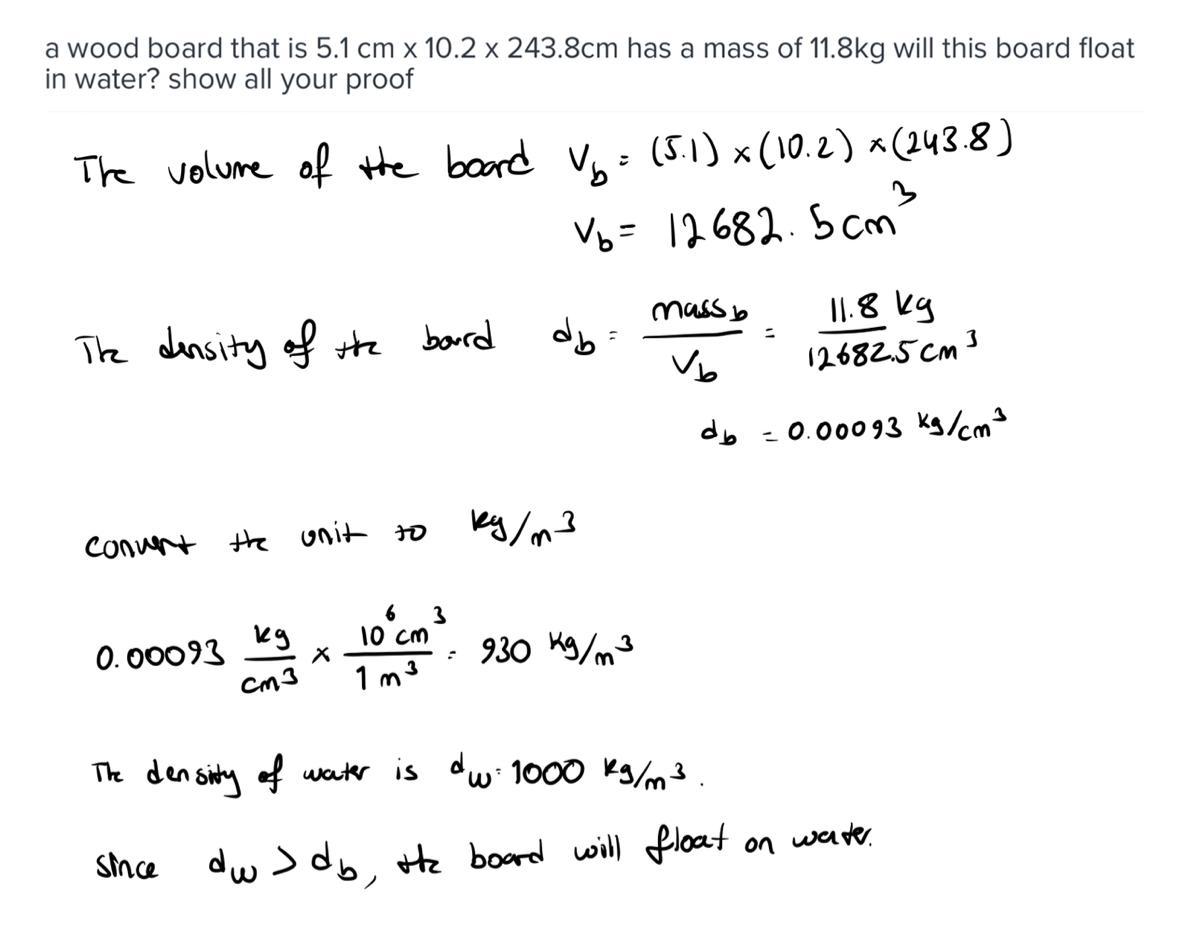 a wood board that is 5.1 cm x 10.2 x 243.8cm has a mass of 11.8kg will this board float
in water? show all your proof
The volume of the board V_b = (5.1) × (10.2) × (243.8)
V_b = 12682.5 cm³
The density of the board d_b = mass_b / V_b = 11.8 kg / 12682.5 cm³
d_b = 0.00093 kg/cm³
convert the unit to kg/m³
0.00093 kg/cm³ × 10⁶ cm³ / 1 m³ = 930 kg/m³
The density of water is d_w = 1000 kg/m³.
Since d_w > d_b, the board will float on water.